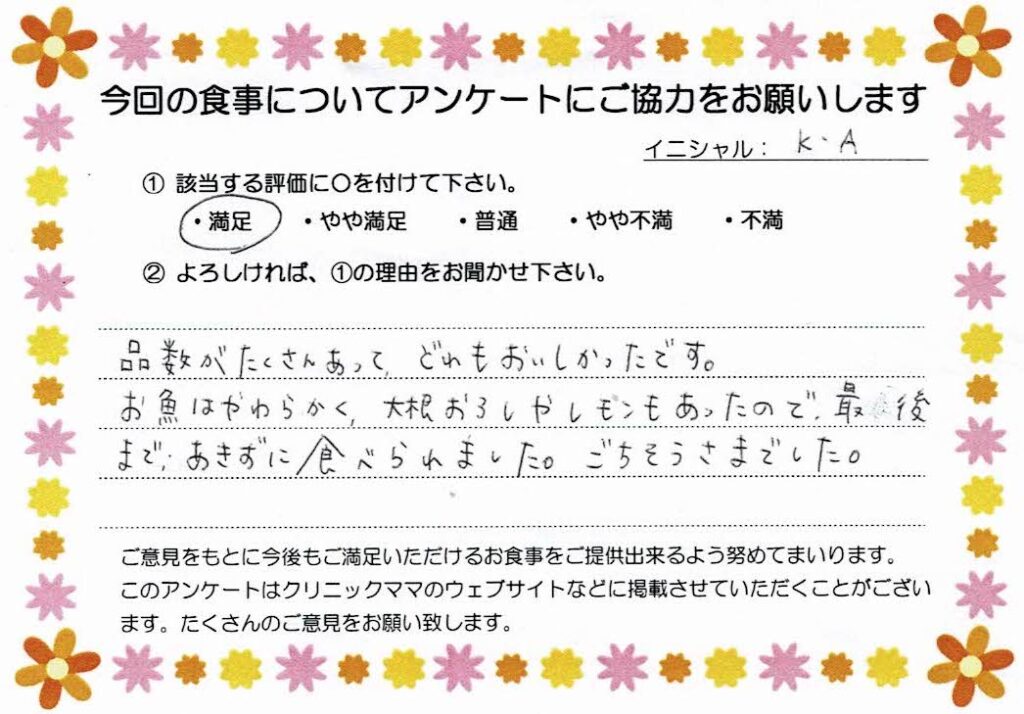 今回の食事についてアンケートにご協力をお願いします
イニシャル： K・A
① 該当する評価に〇を付けて下さい。
・満足 ・やや満足 ・普通 ・やや不満 ・不満
② よろしければ、①の理由をお聞かせ下さい。
品数がたくさんあって、どれもおいしかったです。
お魚はやわらかく、大根おろしやレモンもあったので、最後
まで、あきずに食べられました。ごちそうさまでした。
ご意見をもとに今後もご満足いただけるお食事をご提供出来るよう努めてまいります。
このアンケートはクリニックママのウェブサイトなどに掲載させていただくことがござい
ます。たくさんのご意見をお願い致します。